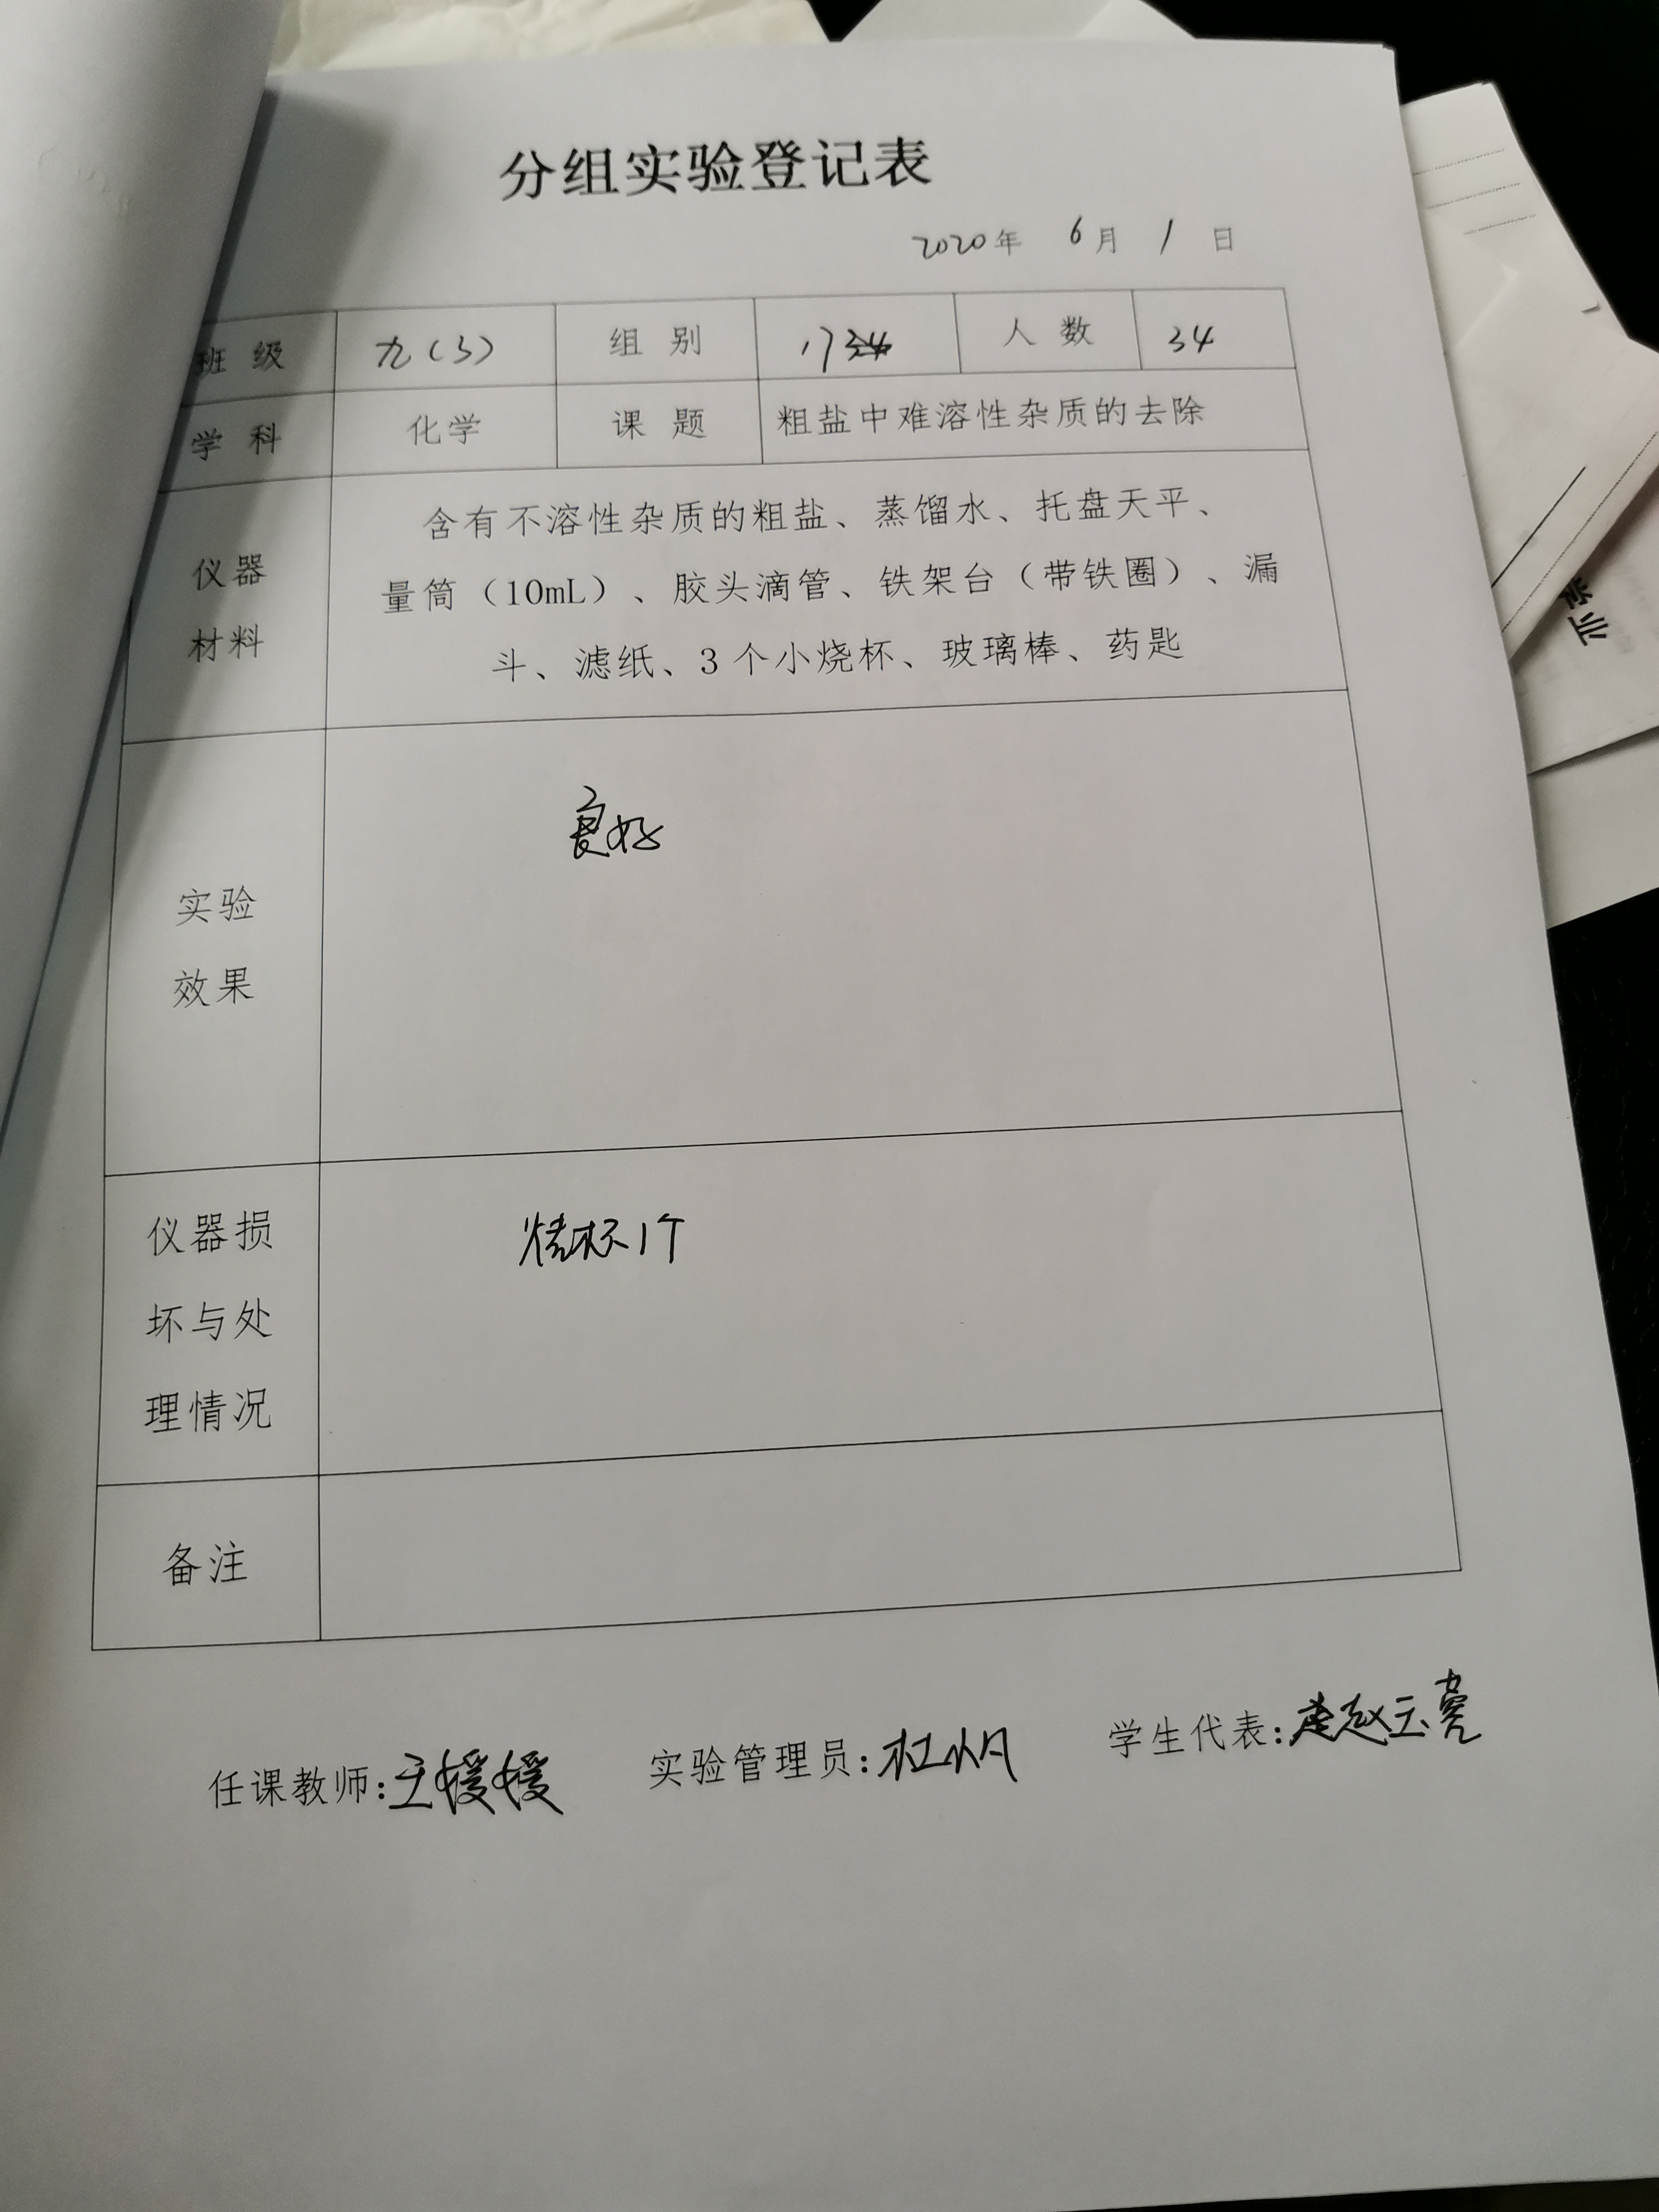 分组实验登记表
2020年 6月 1 日
班级 九(3) 组别 17 人数 34
学科 化学 课题 粗盐中难溶性杂质的去除
仪器
材料
含有不溶性杂质的粗盐、蒸馏水、托盘天平、
量筒（10mL）、胶头滴管、铁架台（带铁圈）、漏
斗、滤纸、3个小烧杯、玻璃棒、药匙
实验
效果
良好
仪器损
坏与处
理情况
烧杯1个
备注
任课教师:王媛媛 实验管理员:杜帆 学生代表:赵云亮